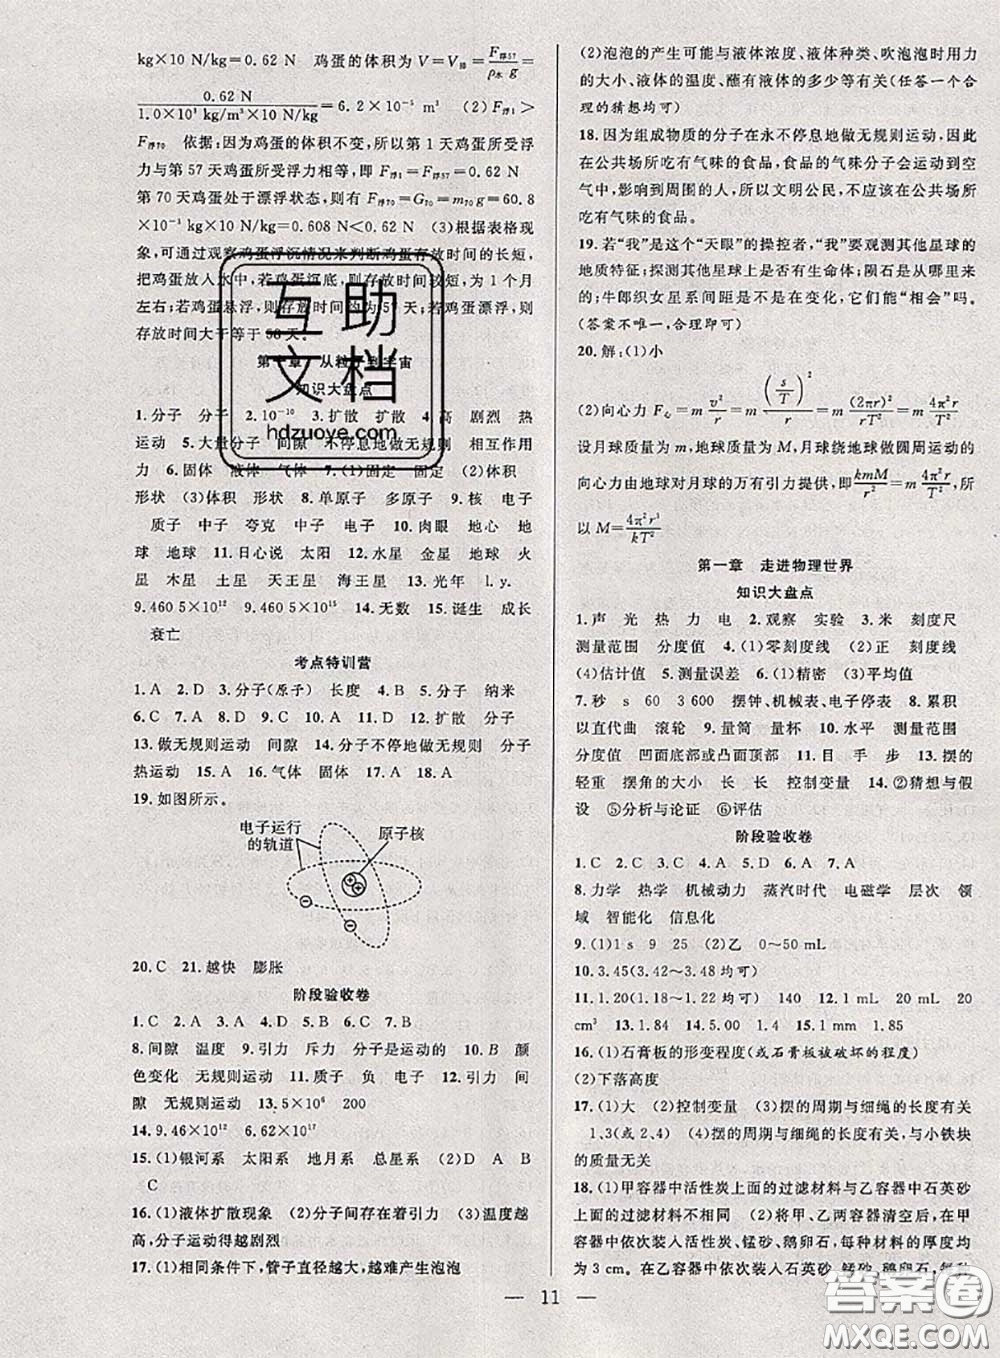 kg×10 N/kg=0.62 N 鸡蛋的体积为V=V排=F浮57/ρ水 g=
0.62 N/1.0×10³ kg/m³×10 N/kg=6.2×10⁻⁵ m³ (2)F浮1>
F浮70 依据:因为鸡蛋的体积不变,所以第1天鸡蛋所受浮
力与第57天鸡蛋所受浮力相等,即F浮1=F浮57=0.62 N
第70天鸡蛋处于漂浮状态,则F浮70=G70=m70g=60.8
×10⁻³ kg×10 N/kg=0.608 N<0.62 N (3)根据表格现
象,可通过观察鸡蛋浮沉情况来判断鸡蛋存放时间的长短,
把鸡蛋放入水中,若鸡蛋沉底,则存放时间较短,为1个月
左右;若鸡蛋悬浮,则存放时间约为57天;若鸡蛋漂浮,则
存放时间大于等于58天。
第十章 从粒子到宇宙
知识大盘点
1.分子 分子 2.10⁻¹⁰ 3.扩散 扩散 4.高 剧烈 热
运动 5.大量分子 间隙 不停息地做无规则 相互作用
力 6.固体 液体 气体 7.(1)固定 固定 (2)体积
形状 (3)体积 形状 8.单原子 多原子 9.核 电子
质子 中子 夸克 中子 电子 10.肉眼 地心 地
球 地球 11.日心说 太阳 12.水星 金星 地球 火
星 木星 土星 天王星 海王星 13.光年 l.y.
9.460 5×10¹² 9.460 5×10¹⁵ 14.无数 15.诞生 成长
衰亡
考点特训营
1.A 2.D 3.分子(原子) 长度 4.B 5.分子 纳米
6.C 7.A 8.D 9.D 10.A 11.D 12.扩散 分子
13.做无规则运动 间隙 14.分子不停地做无规则 分子
热运动 15.A 16.气体 固体 17.A 18.A
19.如图所示。
电子运行
的轨道
原子核
20.C 21.越快 膨胀
阶段验收卷
1.C 2.A 3.A 4.D 5.B 6.C 7.B
8.间隙 温度 9.引力 斥力 分子是运动的 10.B 颜
色变化 无规则运动 11.质子 负 电子 12.引力 间
隙 无规则运动 13.5×10⁶ 200
14.9.46×10¹² 6.62×10¹⁷
15.(1)银河系 太阳系 地月系 总星系 (2)D A B
C
16.(1)液体扩散现象 (2)分子间存在着引力 (3)温度越
高,分子运动得越剧烈
17.(1)相同条件下,管子直径越大,越难产生泡泡
(2)泡泡的产生可能与液体浓度、液体种类、吹泡泡时用力
的大小、液体的温度、蘸有液体的多少等有关(任答一个合
理的猜想均可)
18.因为组成物质的分子在永不停息地做无规则运动,因此
在公共场所吃有气味的食品,食品的气味分子会运动到空
气中,影响到周围的人,所以文明公民,不应该在公共场所
吃有气味的食品。
19.若“我”是这个“天眼”的操控者,“我”要观测其他星球的
地质特征;探测其他星球上是否有生命体;陨石是从哪里来
的;牛郎织女星系间距是不是在变化,它们能“相会”吗。
(答案不唯一,合理即可)
20.解:(1)小
(2)向心力 F心=m v²/r=m (s/T)²/r=m (2πr)²/rT²=m 4π²r/T²
设月球质量为m,地球质量为M,月球绕地球做圆周运动的
向心力由地球对月球的万有引力提供,即kmM/r²=m 4π²r/T²,所
以M=4π²r³/kT²
第一章 走进物理世界
知识大盘点
1.声 光 热 力 电 2.观察 实验 3.米 刻度尺
测量范围 分度值 4.(1)零刻度线 (2)正 刻度线
(4)估计值 5.测量误差 6.(1)精密 (3)平均值
7.秒 s 60 3 600 摆钟、机械表、电子停表 8.累积
以直代曲 滚轮 9.量筒 量杯 10.水平 测量范围
分度值 凹面底部或凸面顶部 11.目 手 步 13.摆的
轻重 摆角的大小 长 长 控制变量 14.②猜想与假
设 ⑤分析与论证 ⑥评估
阶段验收卷
1.C 2.C 3.C 4.A 5.D 6.A 7.A
8.力学 热学 机械动力 蒸汽时代 电磁学 层次 领
域 智能化 信息化
9.(1)1 s 9 25 (2)乙 0~50 mL
10.3.45(3.42~3.48均可)
11.1.20(1.18~1.22均可) 140 12.1 mL 20 mL 20
cm³ 13.1.84 14.5.00 1.4 15.1 mm 1.85
16.(1)石膏板的形变程度(或石膏板被破坏的程度)
(2)下落高度
17.(1)大 (2)控制变量 (3)摆的周期与细绳的长度有关
1、3(或2、4) (4)摆的周期与细绳的长度有关,与小铁块
的质量无关
18.(1)甲容器中活性炭上面的过滤材料与乙容器中石英砂
上面的过滤材料不相同 (2)将甲、乙两容器清空后,在甲
容器中依次装入活性炭、锰砂、鹅卵石,每种材料的厚度均
为3 cm。在乙容器中依次装入石英砂、锰砂、鹅卵石,每种
— 11 —
互助
文档
hdzuoye.com
答案圈
MXQE.COM